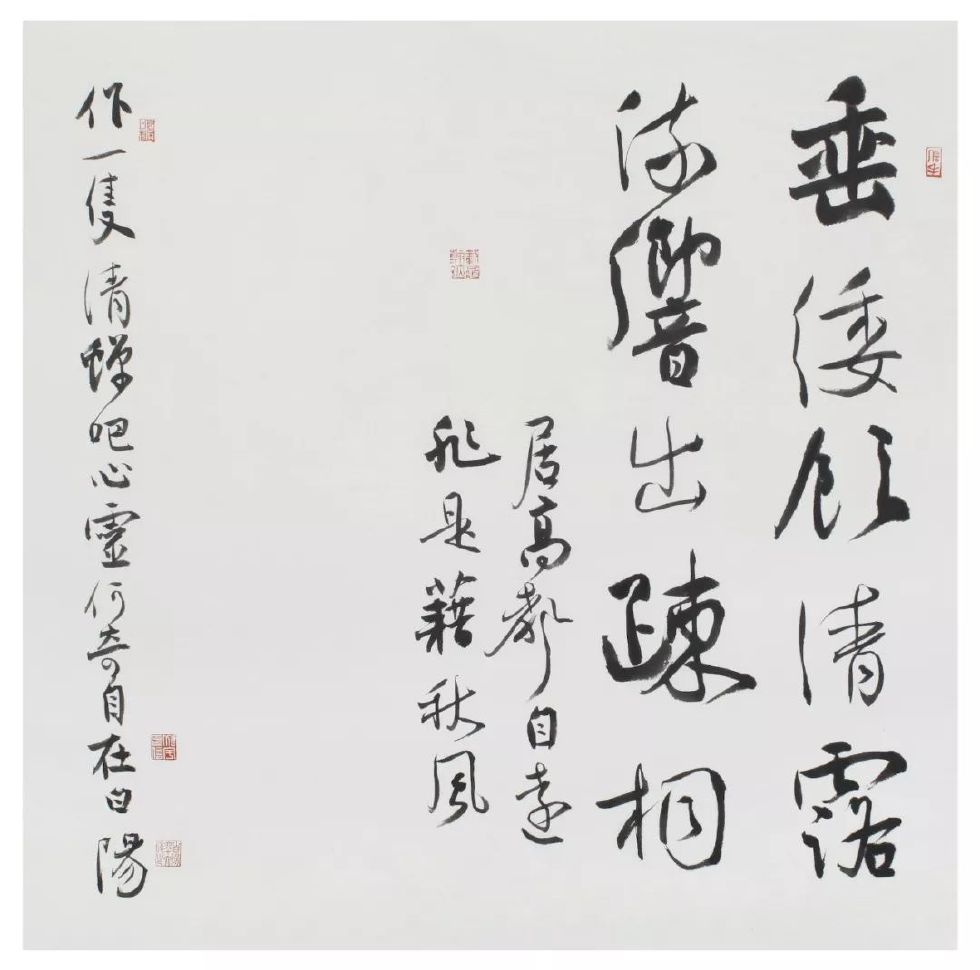 垂緌飲清露
流響出疎桐
居高聲自遠
非是藉秋風
作一隻清蟬吧心靈何奇自在白陽